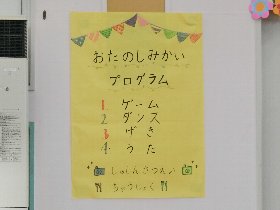 おたのしみかい
プログラム
1. ゲーム
2. ダンス
3. げき
4. うた
しゃしんさつえい
ちゅうしょく